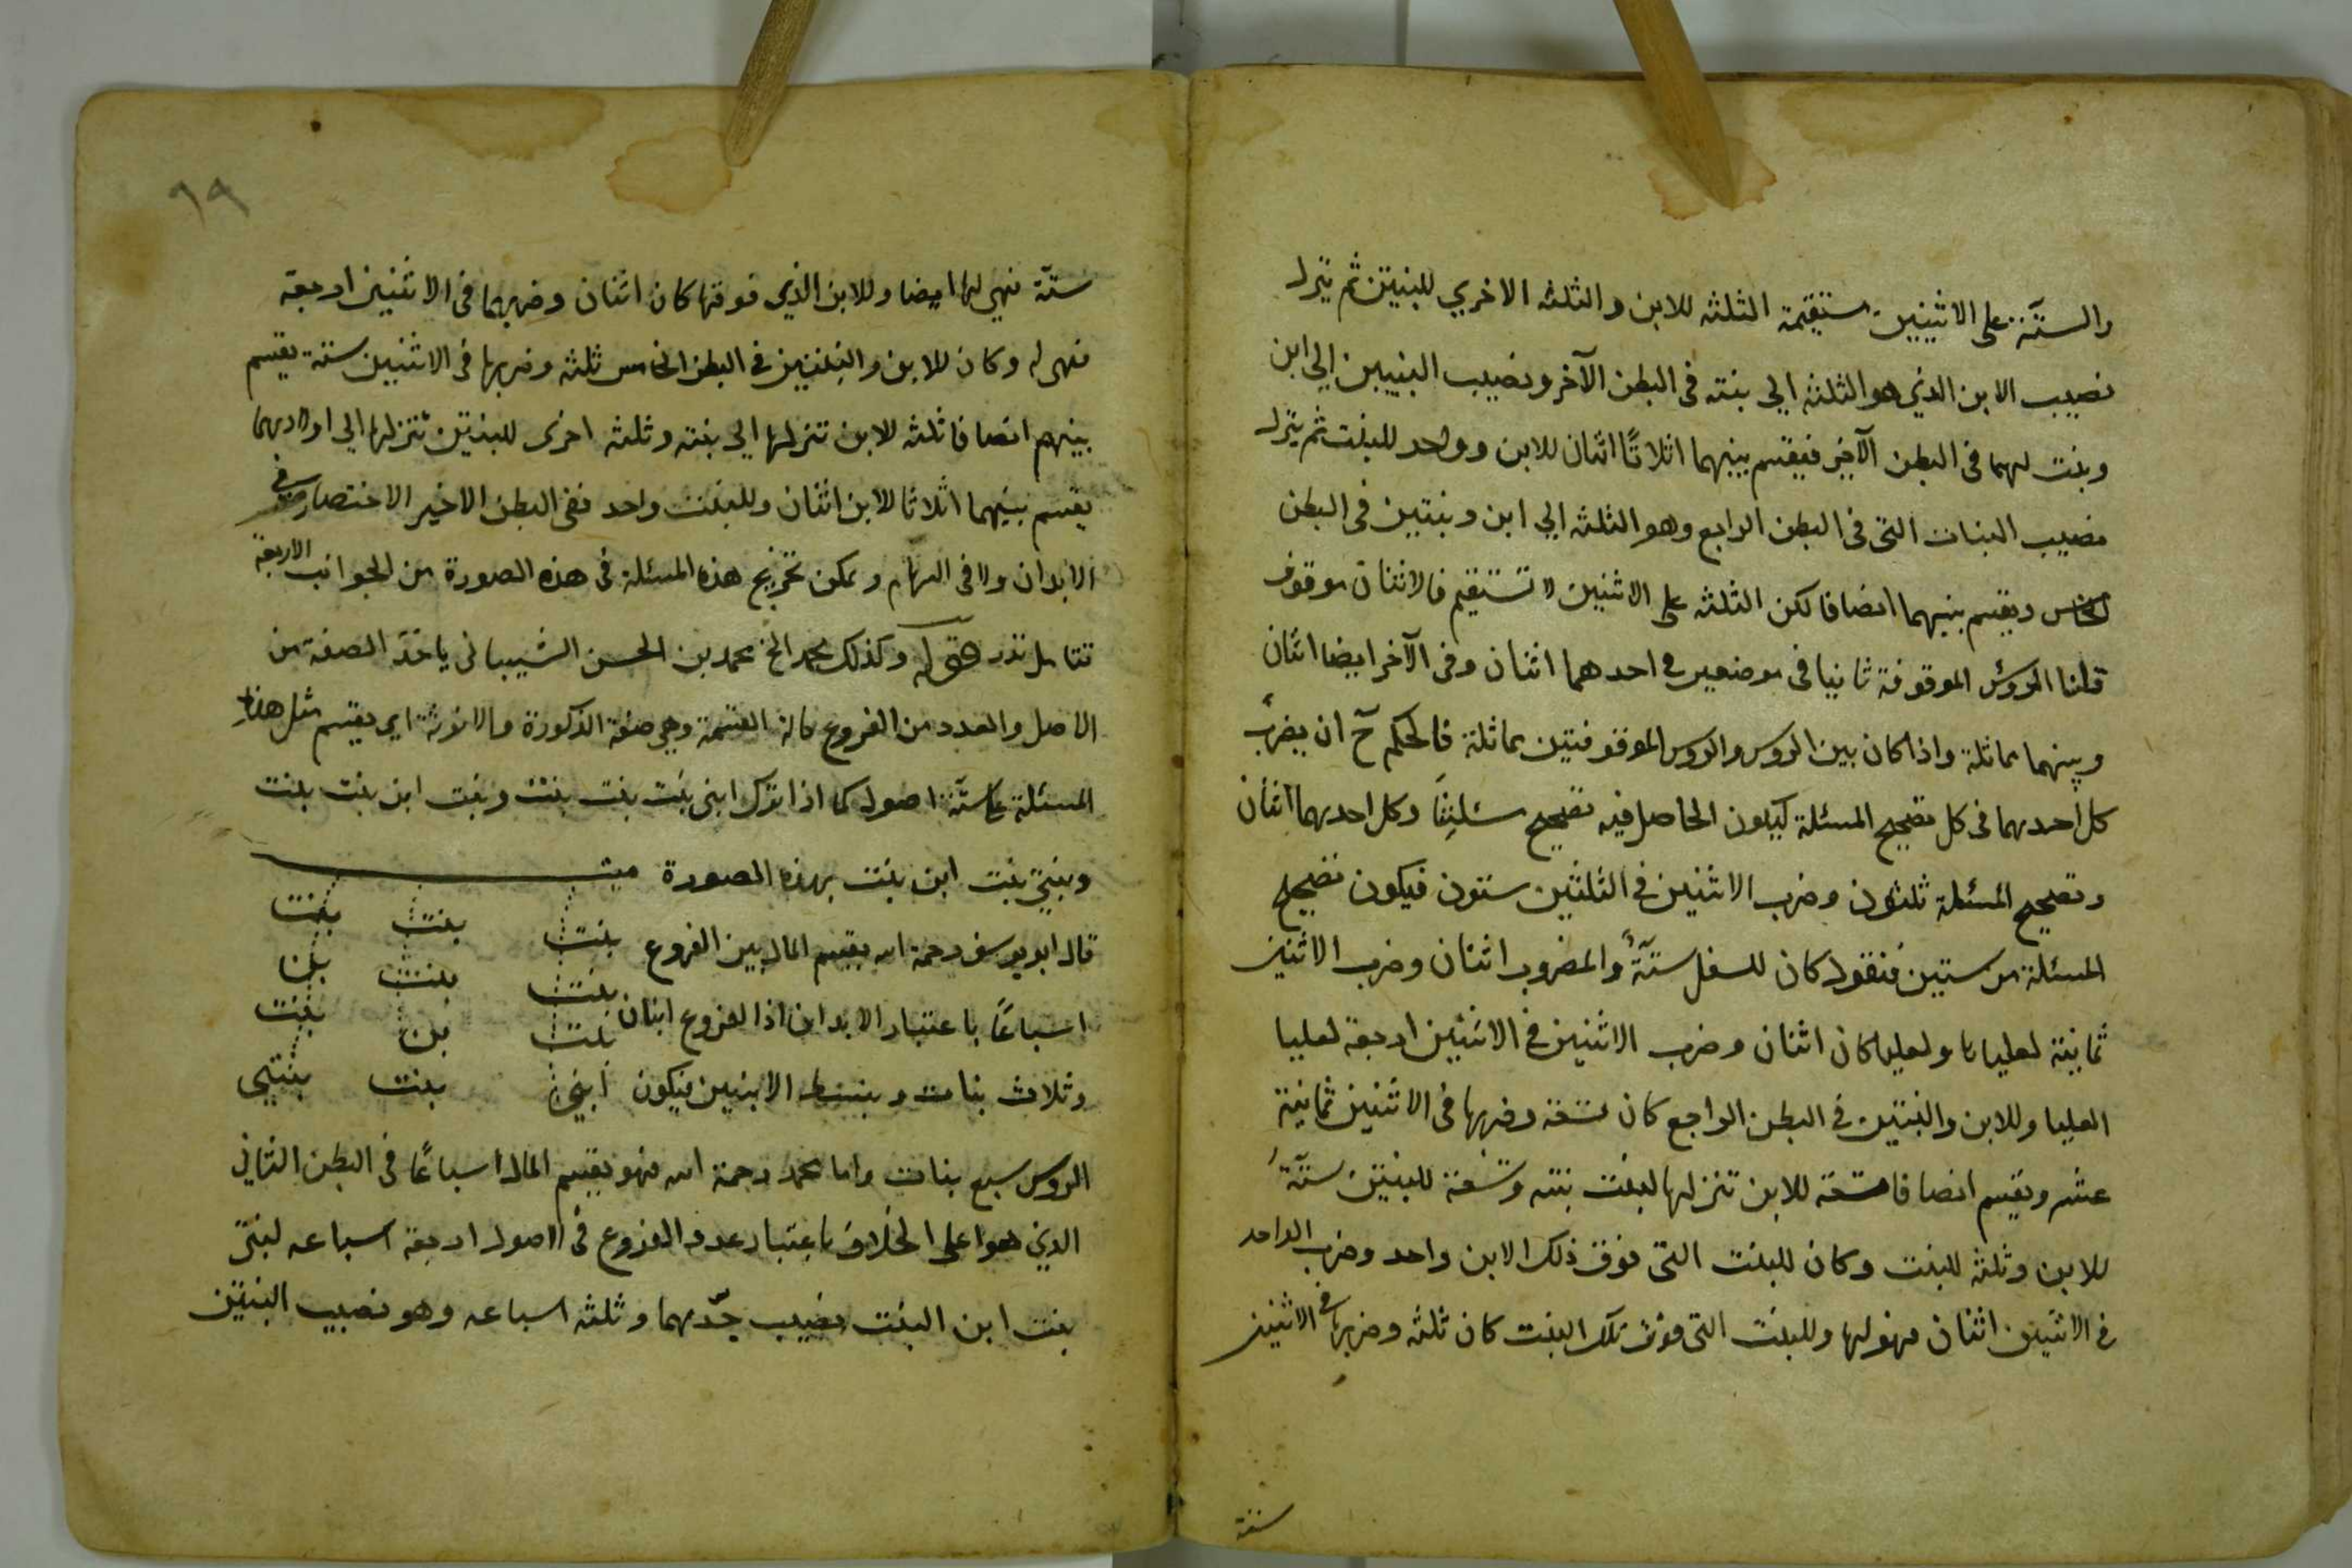 والستّة على الاثنين مستقيمة الثلثه للابن والثلثه الاخري للبنتين ثم ينزل
نصيب الابن الذي هو الثلثه الي بنته فى البطن الآخر ونصيب البنتين الي ابن
وبنت لهما فى البطن الآخير فيقسم بينهما اثلاثًا اثنان للابن وواحد للبنت ثم ينزل
نصيب البنات التى فى البطن الرابع وهو الثلثه الي ابن وبنتين فى البطن
الخامس ويقسم بينهما انصافا لكن الثلثه على الاثنين لا تستقيم فالاثنان موقوف
قلنا الروئس الموقوفة ثانيا فى موضعين فى احدهما اثنان وفى الآخر ايضا اثنان
وبينهما مماثلة واذا كان بين الروس والروس الموقوفتين مماثلة فالحكم ح ان يضرب
كل احديهما فى كل تصحيح المسئلة ليكون الحاصل فيه تصحيح وكل احديهما اثنان
وتصحيح المسئلة ثلثون وضرب الاثنين فى الثلثين ستون فيكون تصحيح
المسئلة من ستين فنقول كان للسفل ستّةٌ والمضروب اثنان وضرب الاثنين
ثمانية لعليا ولعليا كان اثنان وضرب الاثنين فى الاثنين اربعة لعليا
العليا وللابن والبنتين فى البطن الرابع كان تسعة وضربها فى الاثنين ثمانية
عشر ويقسم انصافا تسعة للابن تنزلها لبنت بنته وتسعة للبنتين ستّة
للابن وثلثه للبنت وكان للبنت التى فوق ذلك الابن واحد وضرب الواحد
فى الاثنين اثنان فهو لها وللبنت التى فوق تلك البنت كان ثلثه وضربها فى الاثنين
ستة
٩٩
ستّة فهي لها ايضا وللابن الذي فوقها كان اثنان وضربهما فى الاثنين اربعة
فهى له وكان للابن والبنتين فى البطن الخامس ثلثه وضربها فى الاثنين ستة يقسم
بينهم انصافا ثلثه للابن تنزلها الي بنته وثلثه اخرى للبنتين تنزلها الي اولاديهما
يقسم بينهما اثلاثا للابن اثنان وللبنت واحد ففى البطن الاخير الاختصار فى
الابدان ولا فى السهام ويمكن تخريج هذه المسئلة فى هذه الصورة من الجوانب الاربعة
فتامل تدر وكذلك محمد الخ محمد بن الحسن الشيبانى ياخذ الصفة من
الاصل والعدد من الفروع حالة القسمة وهى صفة الذكورة والانوثة اى يقسم مثل هذه
المسئلة على ستّة اصول كما اذا ترك ابنى بنت بنت بنت وبنت ابن بنت بنت
وبنتى بنت ابن بنت بهذه الصورة ميت
قال ابو يوسف رحمة الله يقسم المال بين الفروع بنت بنت بنت
بنت بنت بن
اسباعًا باعتبار الابدان اذا الفروع ابنان بنت بن بنت
وثلاث بنات وبنسط الابنين فيكون ابنى بنت بنتى
الروس سبع بنات واما محمد رحمة الله فهو يقسم المال اسباعًا فى البطن الثاني
الذي هو اعلى الخلاف باعتبار عدد الفروع فى الاصول اربعة اسباعه لبنتى
بنت ابن البنت نصيب جدّهما وثلثه اسباعه وهو نصيب البنتين